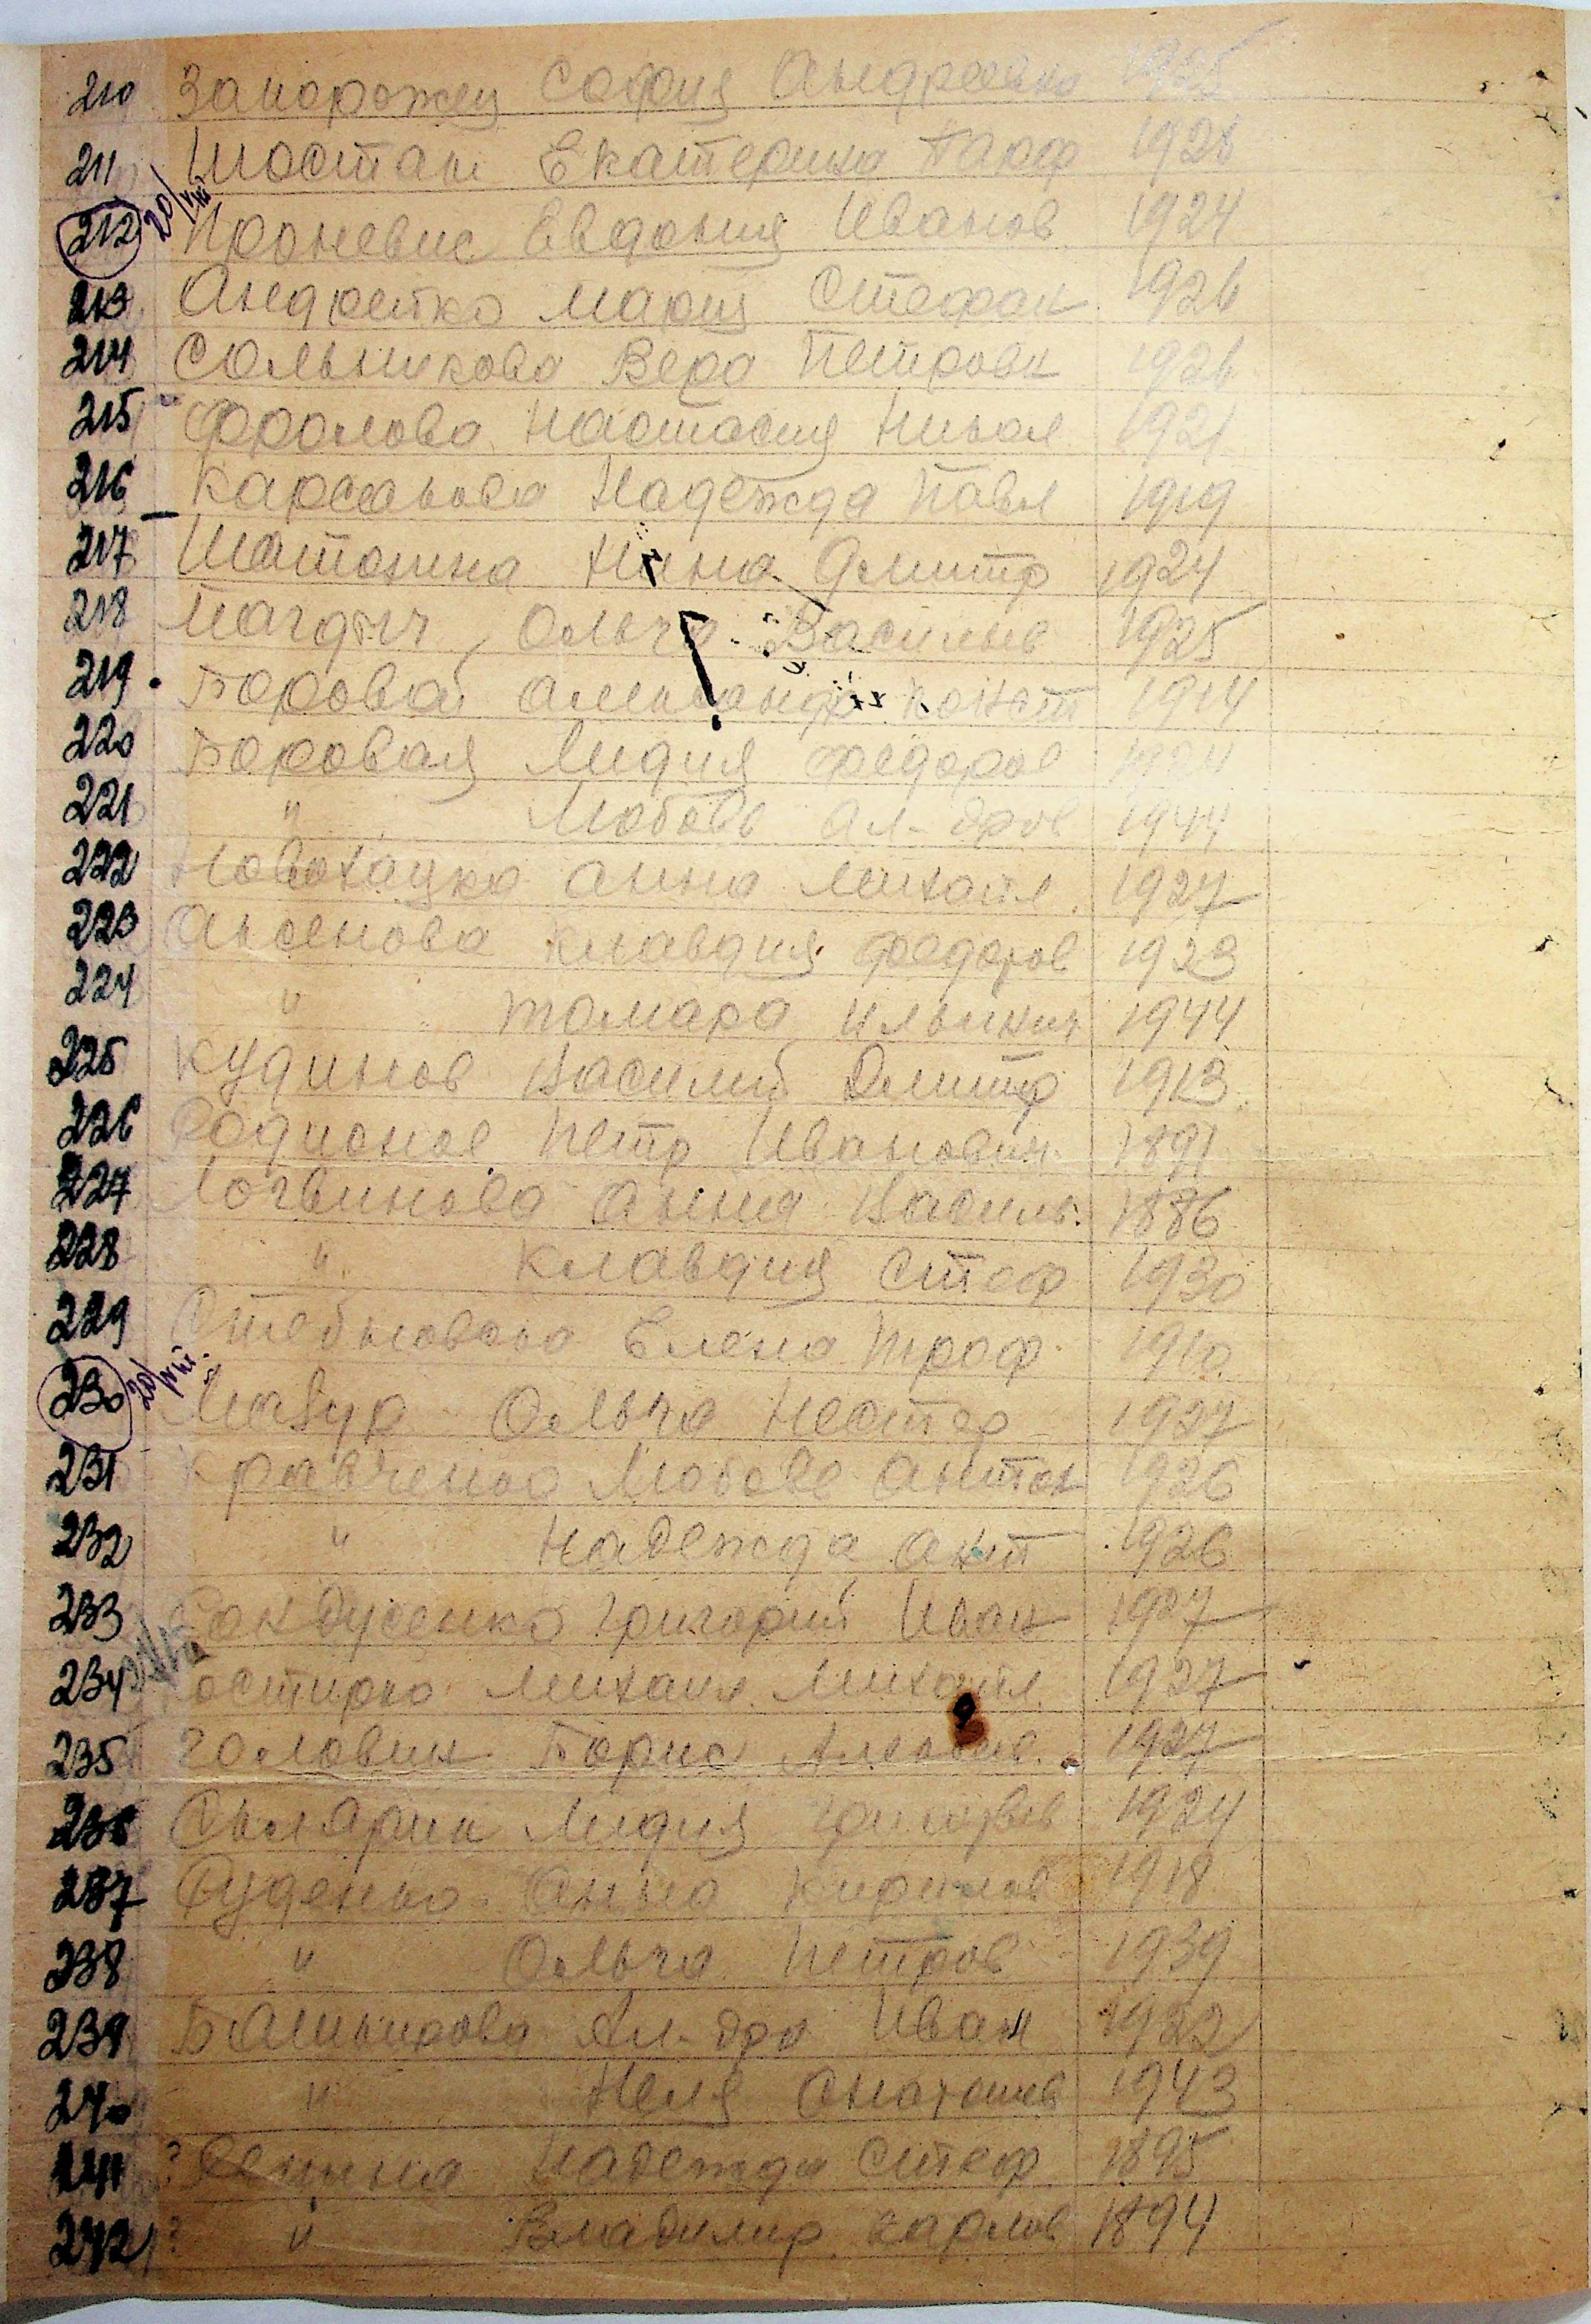 210 Запорожец София Андреевна 1925
211 Шостак Екатерина Парф 1926
212 20/VIII Проневис Евдокия Иванов 1924
213 Андрейко Мария Стефан 1926
214 Сольникова Вера Петровн 1926
215 Фролова Настасия Никол 1921
216 Карсакова Надежда Павл 1919
217 Шатохина Нина Дмитр 1924
218 Ольга Васильев 1925
219 Боровой Александр Конст 1914
220 Боровая Лидия Федоров 1924
221 " Любовь Ал-дров 1944
222 Новохацка Анна Михайл. 1927
223 Аксенова Клавдия Федоров 1923
224 " Тамара Ильинич 1944
225 Кудинов Василий Дмитр 1913
226 Родионов Петр Иванович 1891
227 Логвинова Анна Василь. 1886
228 " Клавдия Стеф 1930
229 Елена Троф. 1910
230 20/VIII. Мазур Ольга Нестер 1927
231 Кравченко Любовь Антон 1926
232 " Надежда Ант 1926
233 Григорий Иван 1927
234 Михаил Михайл. 1927
235 Головин Борис Алексеев. 1927
236 Скляр Лидия Григорьев 1924
237 Руденко Анна Кирилов 1918
238 " Ольга Петров 1939
239 Башкирова Ал-дра Иван 1922
240 " Неля Анатолив 1943
241 ? Надежда Стеф 1895
242 ? " Владимир Карлов 1894